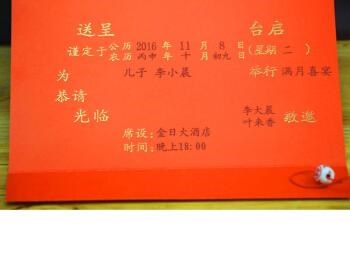 送呈 台启
谨定于公历 2016 年 11 月 8 日(星期 二 )
农历 丙申 年 十 月 初九 日
为 儿子 李小晨 举行 满月喜宴
恭请
光临 李大晨 敬邀
叶来香
席设：金日大酒店
时间：晚上18:00